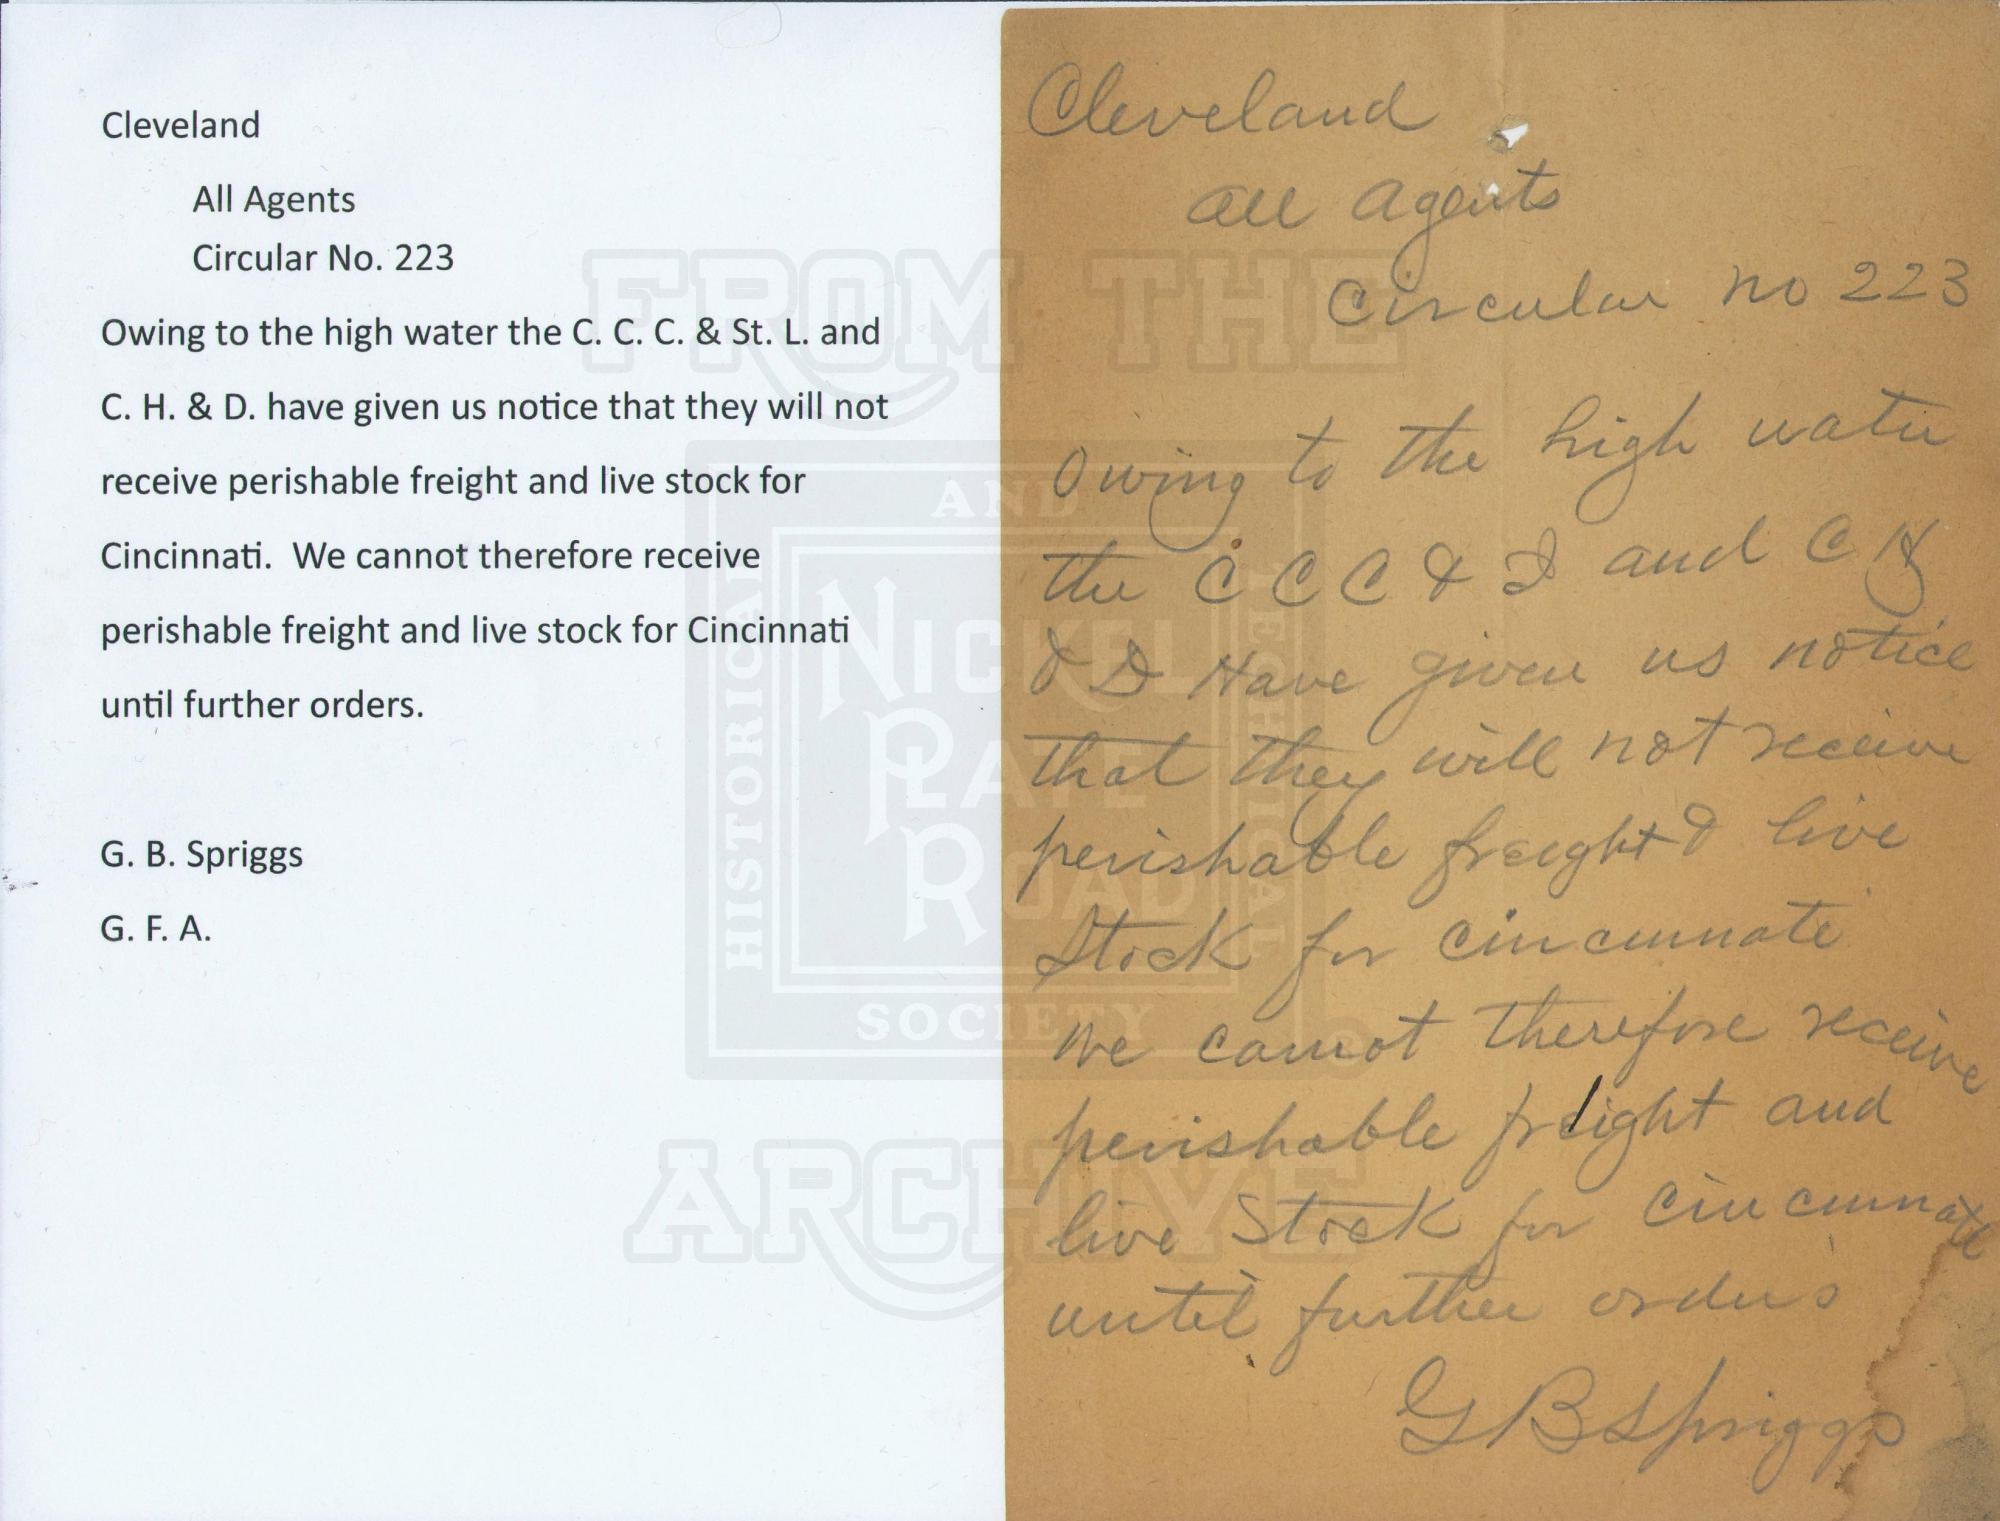 Cleveland
All Agents
Circular No. 223
Owing to the high water the C. C. C. & St. L. and
C. H. & D. have given us notice that they will not
receive perishable freight and live stock for
Cincinnati.  We cannot therefore receive
perishable freight and live stock for Cincinnati
until further orders.
G. B. Spriggs
G. F. A.
Cleveland
All Agents
Circular No 223
Owing to the high water
the C C C & I and C H
& D Have given us notice
that they will not receive
perishable freight & live
Stock for Cincinnate
We cannot therefore receive
perishable freight and
live Stock for Cincinnate
until further orders
G B Spriggs
FROM THE
NICKEL
PLATE
ROAD
HISTORICAL
AND
TECHNICAL
SOCIETY
®
ARCHIVE